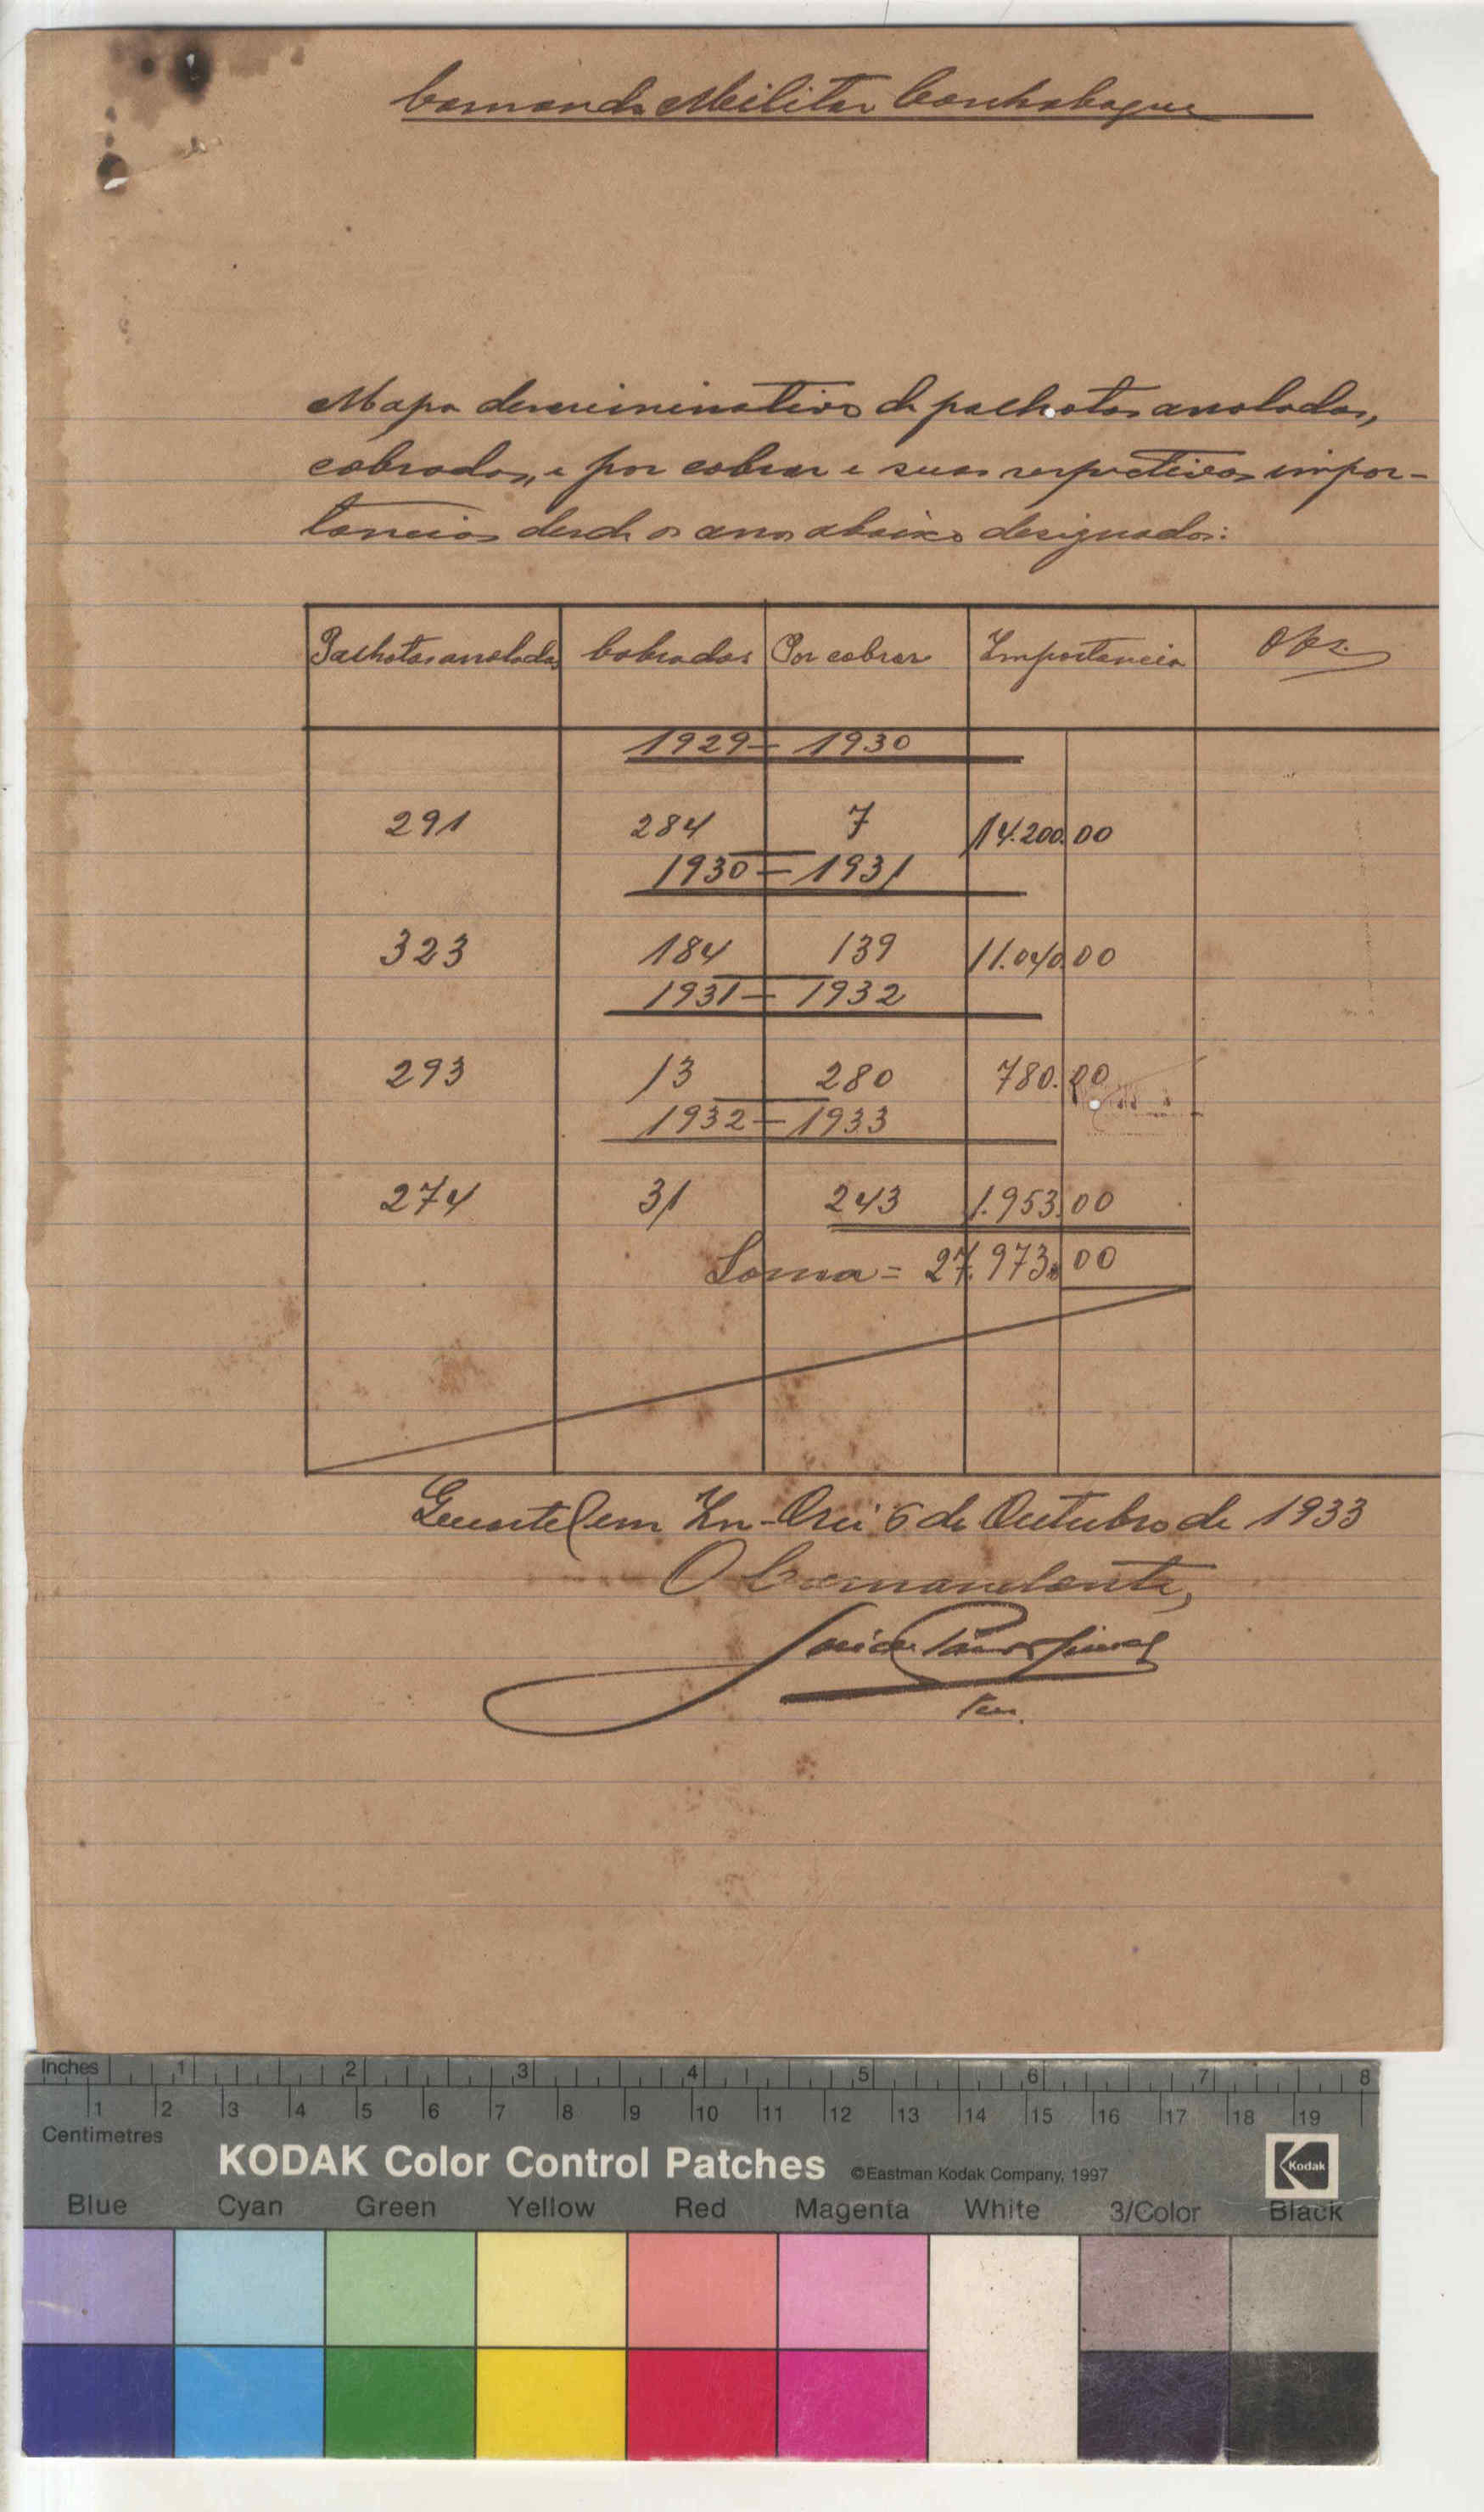 Comando Militar Canhabaque
Mapa descriminativo de palhotas arroladas,
cobradas, e por cobrar e suas respectivas impor-
tancias desde os anos abaixo designados:
Palhotas arroladas Cobradas Por cobrar Importancia Obs.
1929 — 1930
291 284 7 14.200.00
1930 — 1931
323 184 139 11.040.00
1931 — 1932
293 13 280 780.00
1932 — 1933
274 31 243 1.953.00
Soma = 27.973.00
Quartel em In-Orei 6 de Outubro de 1933
O Comandante,
Inches 1 2 3 4 5 6 7 8
1 2 3 4 5 6 7 8 9 10 11 12 13 14 15 16 17 18 19
Centimetres
KODAK Color Control Patches ©Eastman Kodak Company, 1997 Kodak
Blue Cyan Green Yellow Red Magenta White 3/Color Black